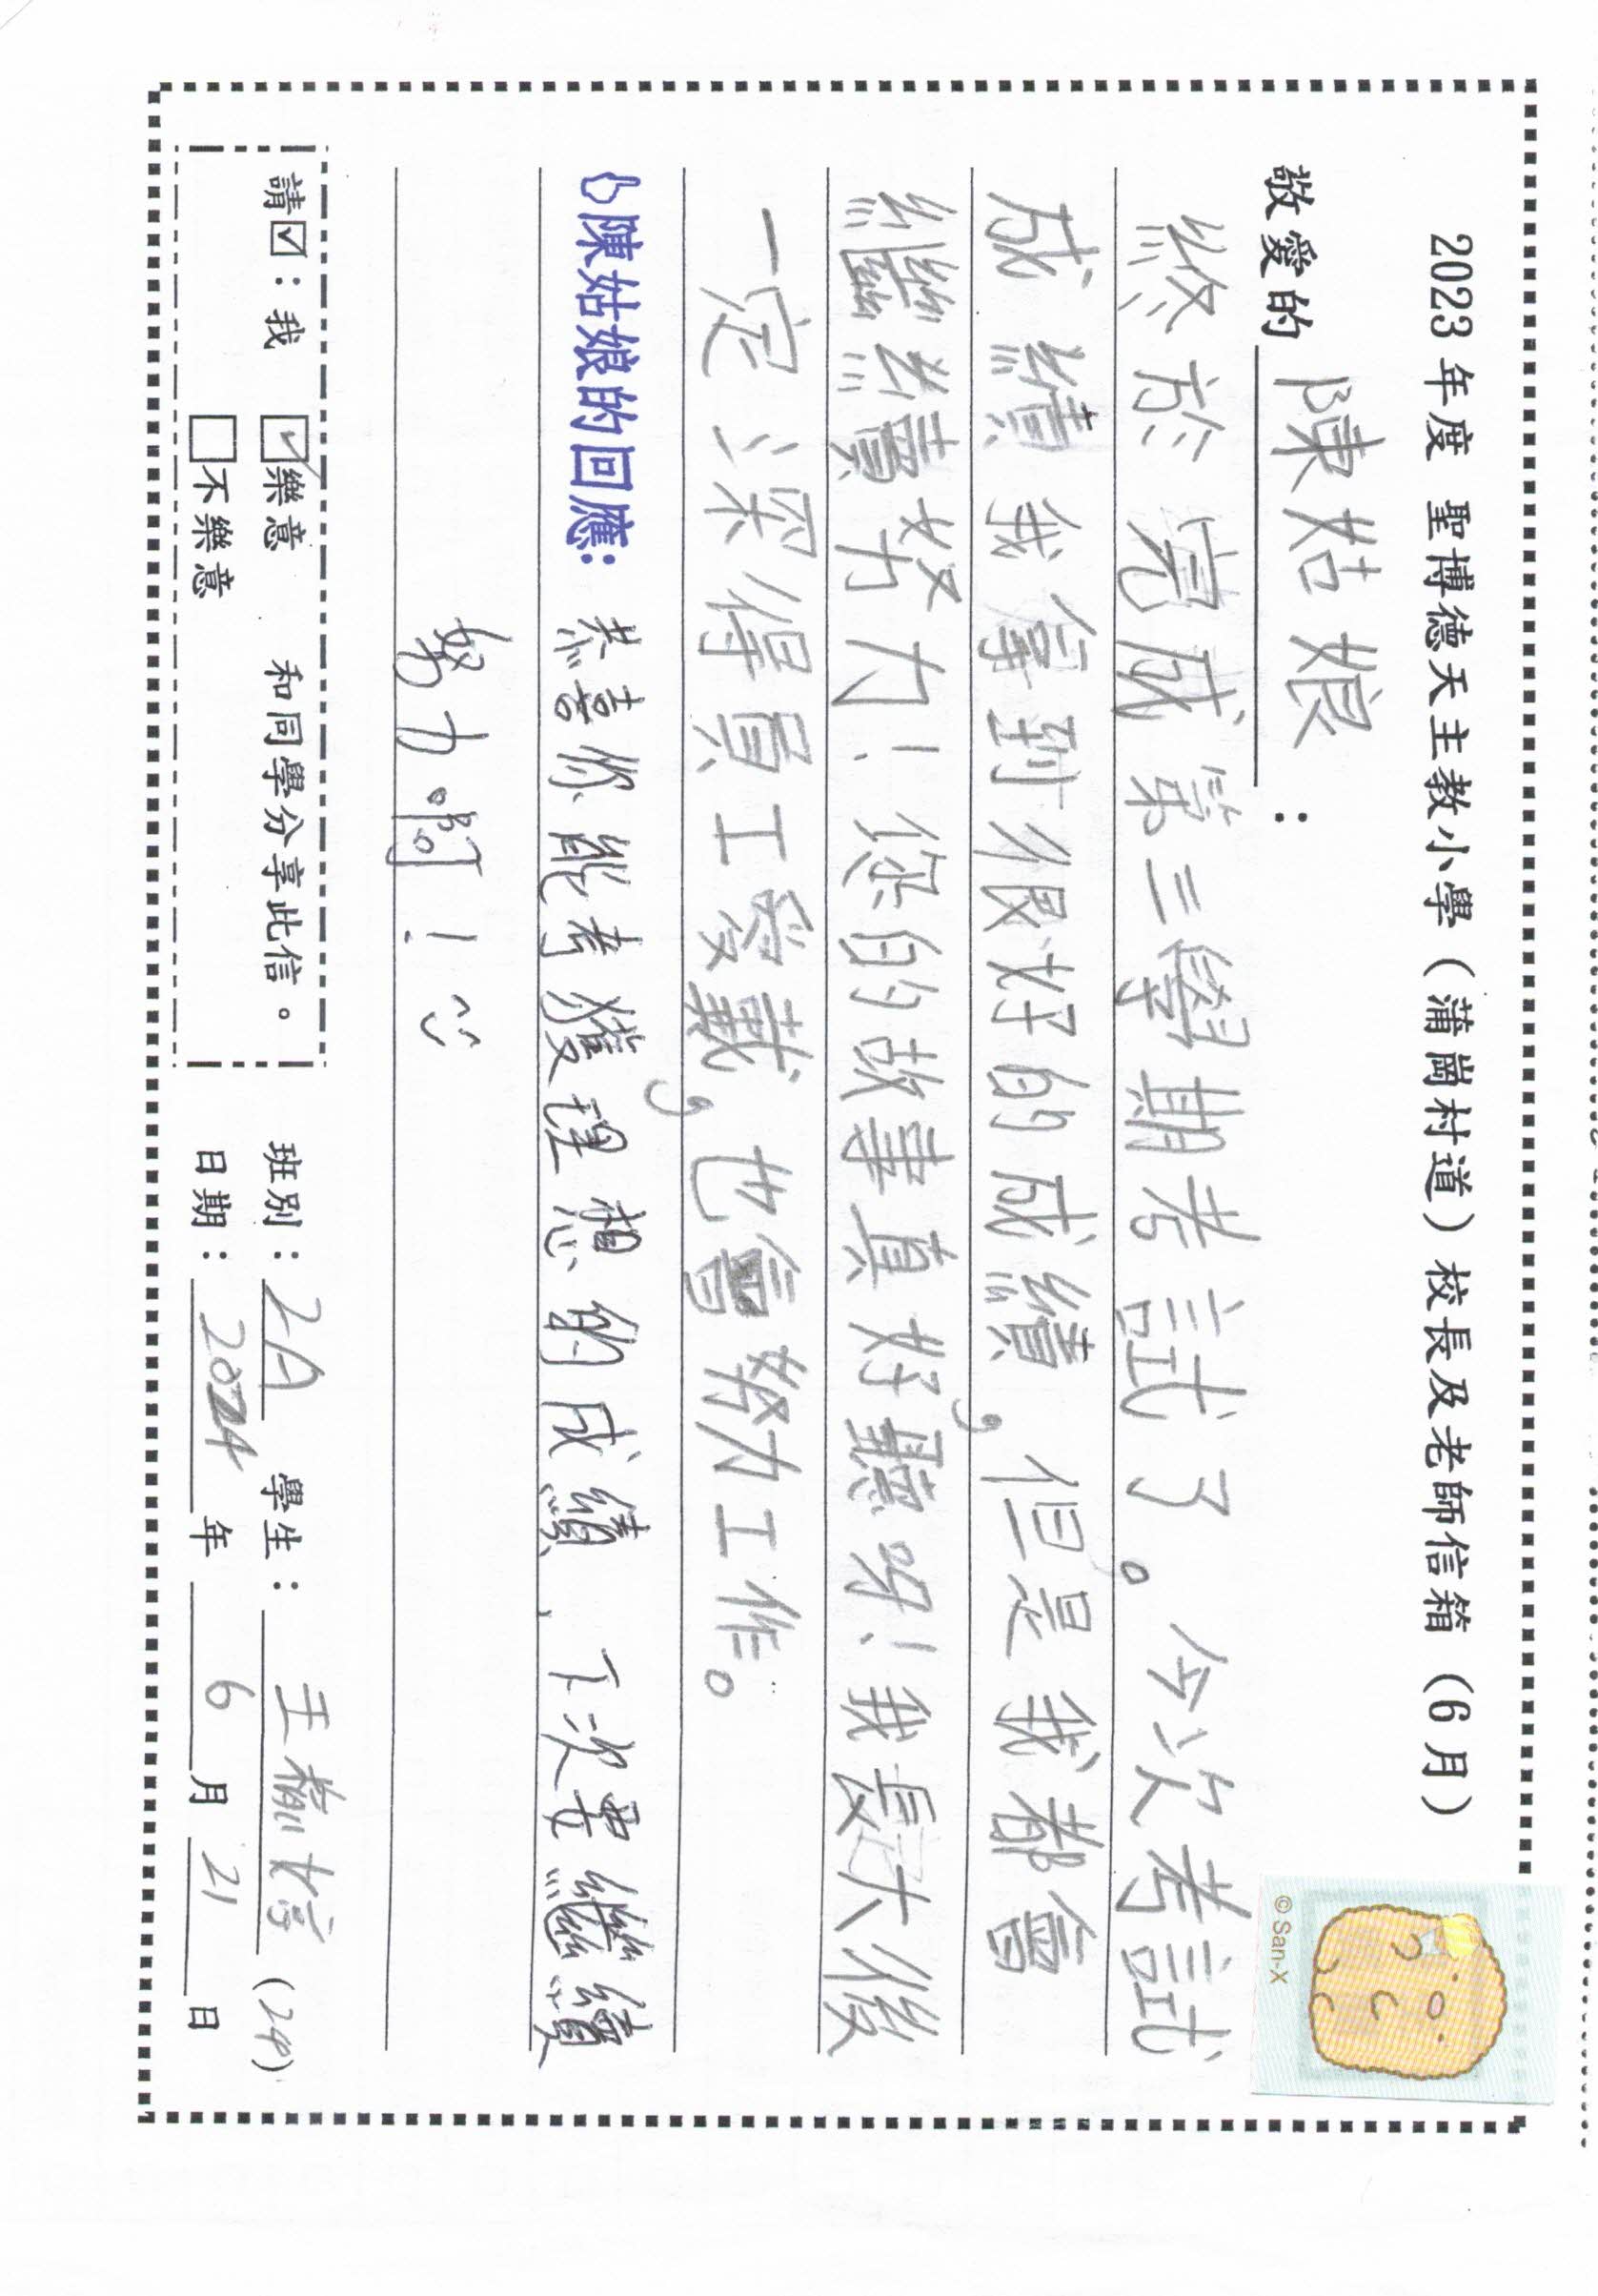 2023 年度 聖博德天主教小學（蒲崗村道）校長及老師信箱（6 月）
敬愛的 陳姑娘：
終於完成第三學期考試了。今次考試
成績我拿到很好的成績，但是我都會
繼續努力！您的故事真好聽呀！我長大後
一定深得員工愛戴，也會努力工作。
陳姑娘的回應：恭喜你能考獲理想的成績，下次要繼續
努力啊！
請☑：我 ☑樂意 和同學分享此信。
□不樂意
班別：2A 學生：王 (24)
日期：2024 年 6 月 21 日
© San-X